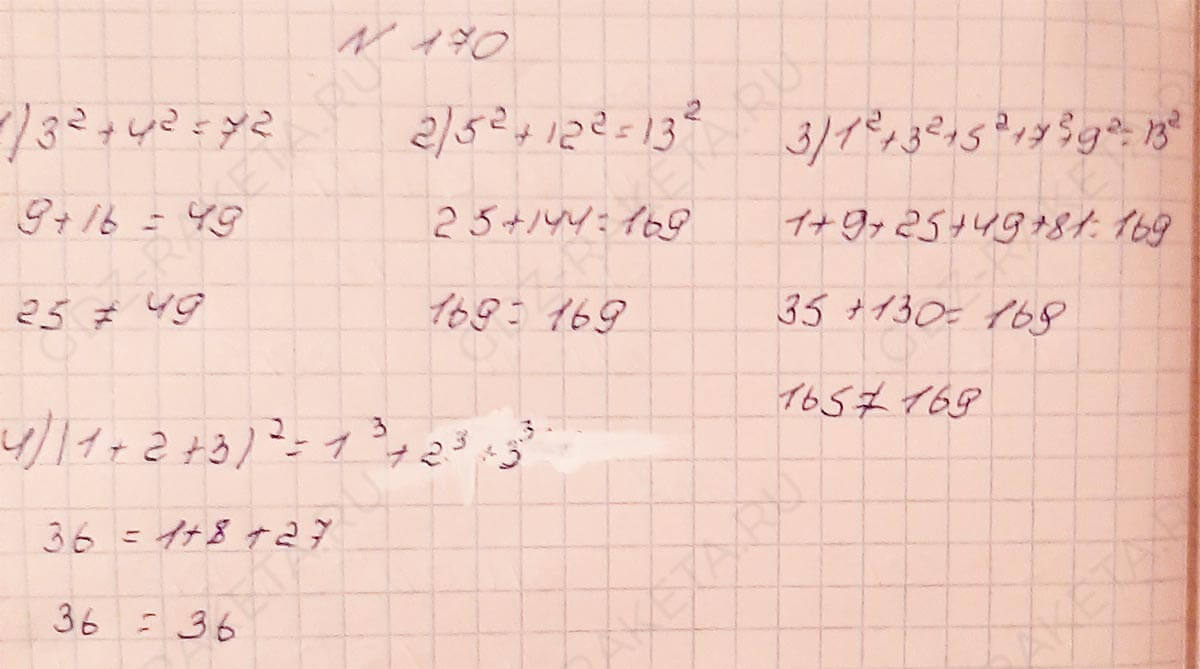 № 170
1) 3² + 4² = 7²
9 + 16 = 49
25 ≠ 49
2) 5² + 12² = 13²
25 + 144 = 169
169 = 169
3) 1² + 3² + 5² + 7² + 9² = 13²
1 + 9 + 25 + 49 + 81 = 169
35 + 130 = 169
165 ≠ 169
4) (1 + 2 + 3)² = 1³ + 2³ + 3³
36 = 1 + 8 + 27
36 = 36
GDZ-RAKETA.RU
GDZ-RAKETA.RU
GDZ-RAKETA.RU